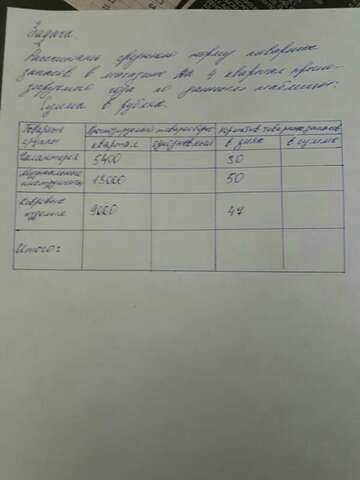 Задача.
Рассчитать среднюю норму товарных
запасов в магазине на 4 квартал прогно-
зируемого года по данным таблицы:
Сумма в рублях.
Товарные группы | Прогнозируемый товарооборот | норматив товарных запасов
квартал | однодневный | в днях | в сумме
Галантерея | 5400 | 30
Музыкальные инструменты | 13000 | 50
Ковровые изделия | 9000 | 47
Итого: